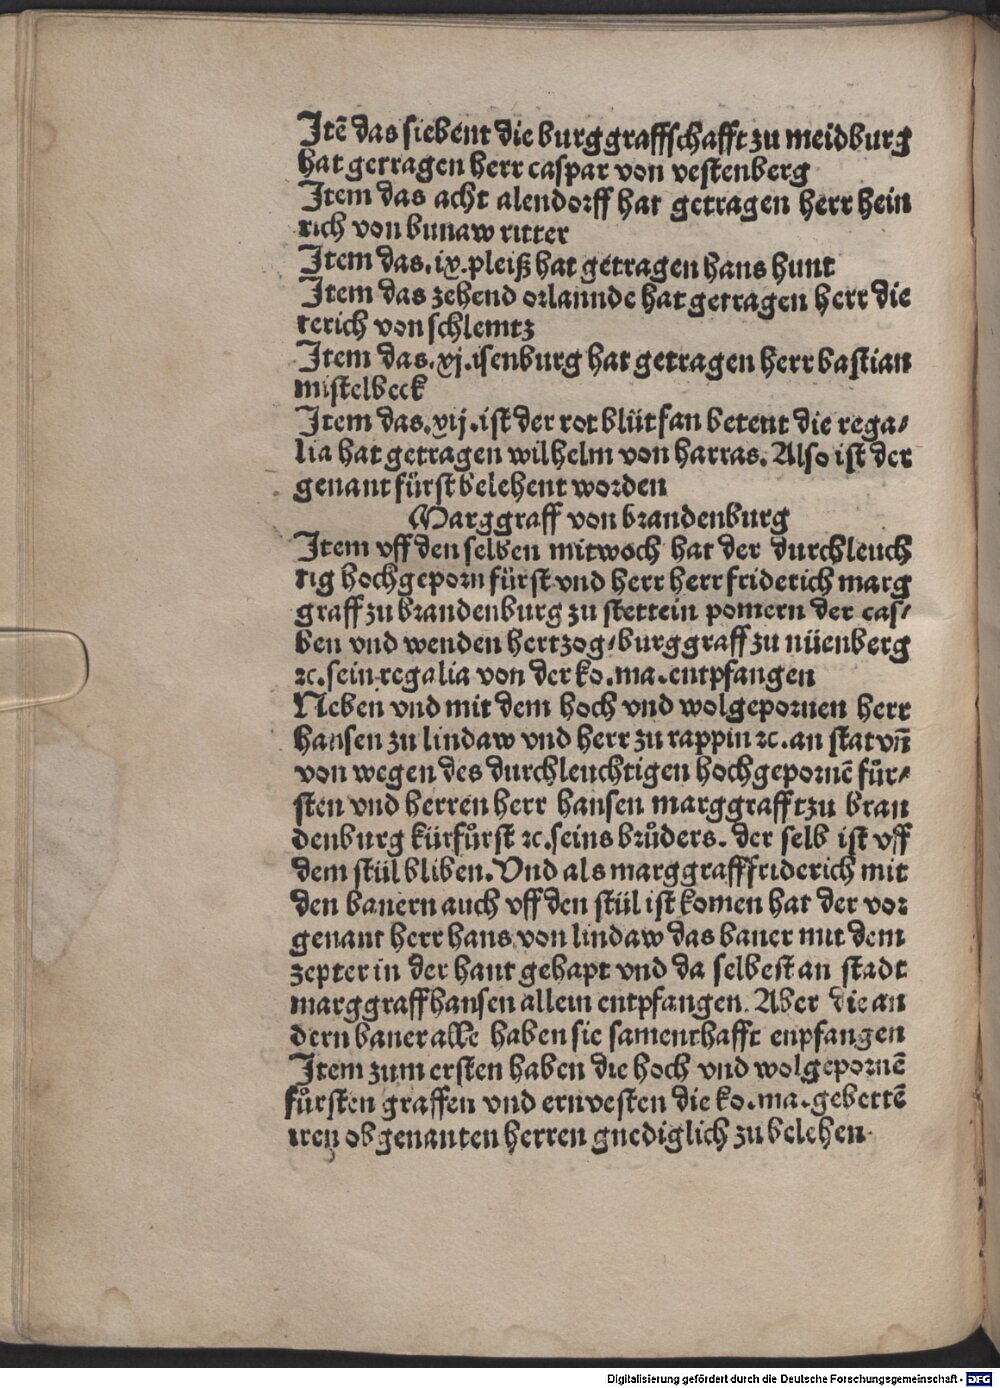 Jtē das siebent die burggraffschafft zu meidburg
hat getragen herr caspar von vestenberg
Jtem das acht alendorff hat getragen herr hein
rich von bunaw ritter
Jtem das .ix. pleiß hat getragen hans hunt
Jtem das zehend orlannde hat getragen herr die
terich von schlemtz
Jtem das .xj. isenburg hat getragen herr bastian
mistelbeck
Jtem das .xij. ist der rot blüt fan betent die rega/
lia hat getragen wilhelm von harras. Also ist der
genant fürst belehent worden
Marggraff von brandenburg
Jtem vff den selben mitwoch hat der durchleuch
tig hochgeporn fürst vnd herr herr friderich marg
graff zu brandenburg zu stettein pomern der cas/
ben vnd wenden hertzog/burggraff zu nüenberg
ꝛc. sein regalia von der ko. ma. entpfangen
Neben vnd mit dem hoch vnd wolgepornen herr
hansen zu lindaw vnd herr zu rappin ꝛc. an stat vñ
von wegen des durchleuchtigen hochgepornē fůr/
sten vnd herren herr hansen marggrafft zu bran
denburg kürfůrst ꝛc. seins brůders. der selb ist vff
dem stül bliben. Vnd als marggraff friderich mit
den banern auch vff den stül ist komen hat der vor
genant herr hans von lindaw das baner mit dem
zepter in der hant gehapt vnd da selbest an stadt
marggraff hansen allein entpfangen. Aber die an
dern baner alle haben sie samenthafft enpfangen
Jtem zum ersten haben die hoch vnd wolgepornē
fůrsten graffen vnd ernvesten die ko. ma. gebettē
iren obgenanten herren gnediglich zu belehen.
Digitalisierung gefördert durch die Deutsche Forschungsgemeinschaft - DFG